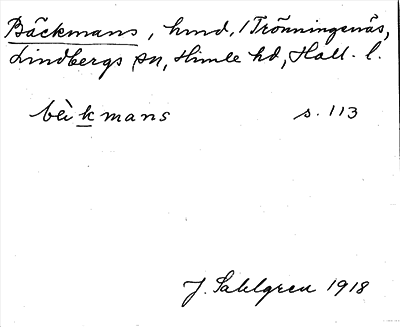 Bäckmans, hmd, 1 Trönningenäs,
Lindbergs sn, Himle hd, Hall. l.
bèkmans s. 113
J. Sahlgren 1918